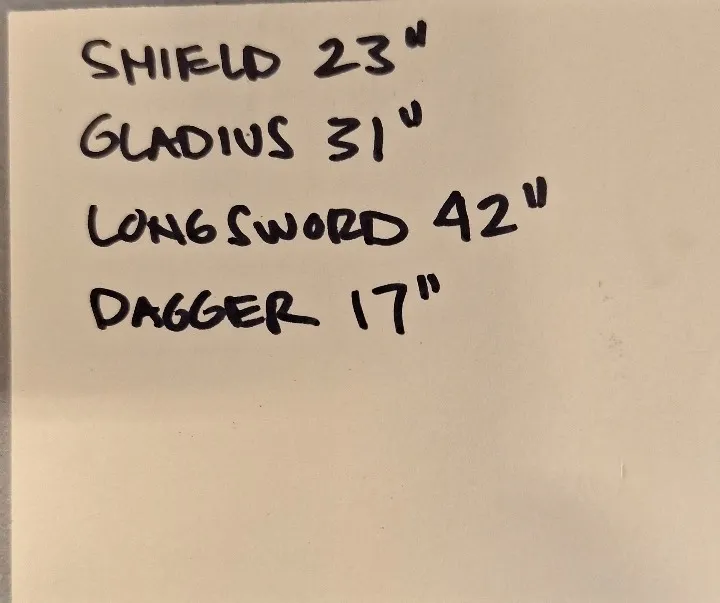 SHIELD 23"
GLADIUS 31"
LONGSWORD 42"
DAGGER 17"